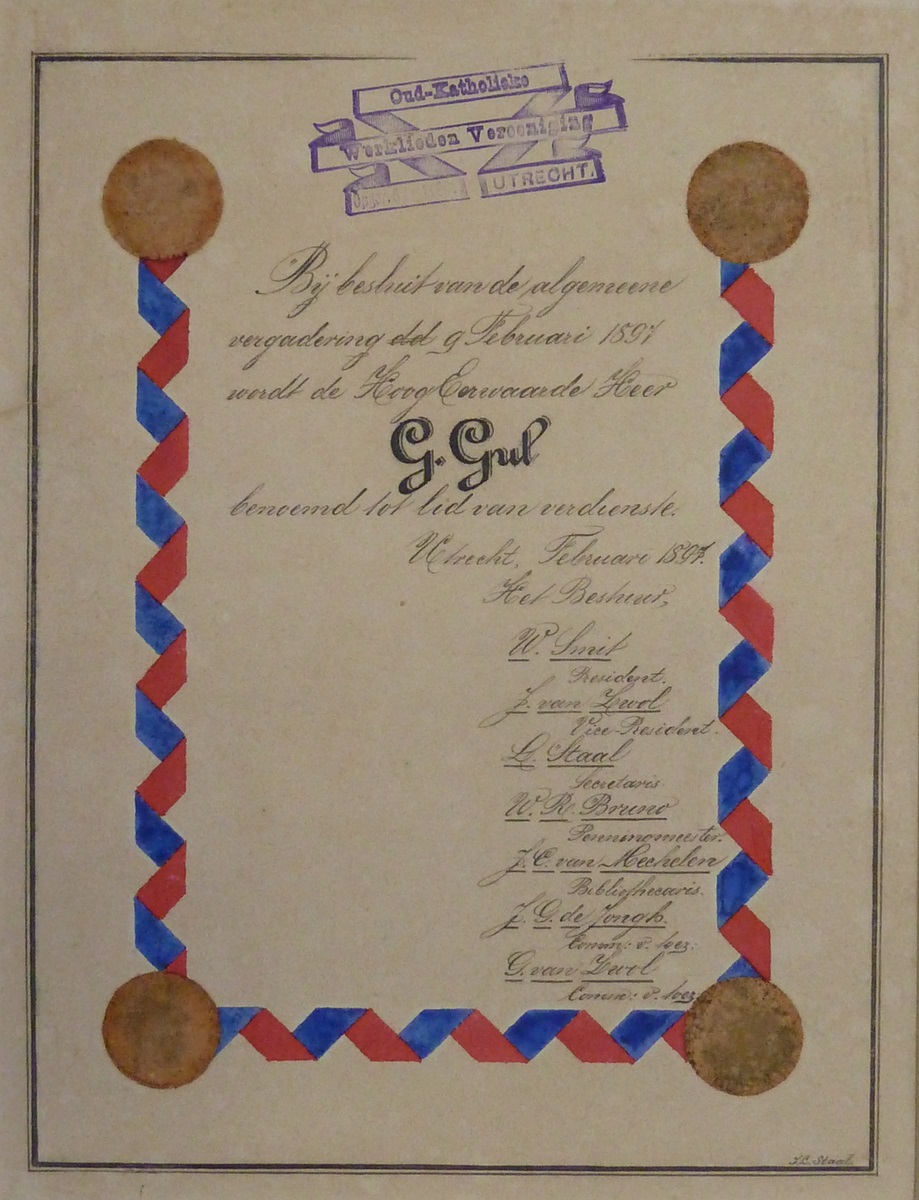 Oud-Katholieke
Werklieden Vereeniging
UTRECHT.
Bij besluit van de algemeene
vergadering dd 9 Februari 1897
wordt de HoogEerwaarde Heer
G. Gul
benoemd tot lid van verdienste.
Utrecht, Februari 1897.
Het Bestuur,
W. Smit
President.
J. van Zwol
Vice-President.
L. Staal
Secretaris
W. R. Bruno
Penningmeester.
J. C. van Mechelen
Bibliothecaris.
J. G. de Jongh.
Comm: v. toez:
G. van Zwol
Comm: v. toez
J. L. Staal.